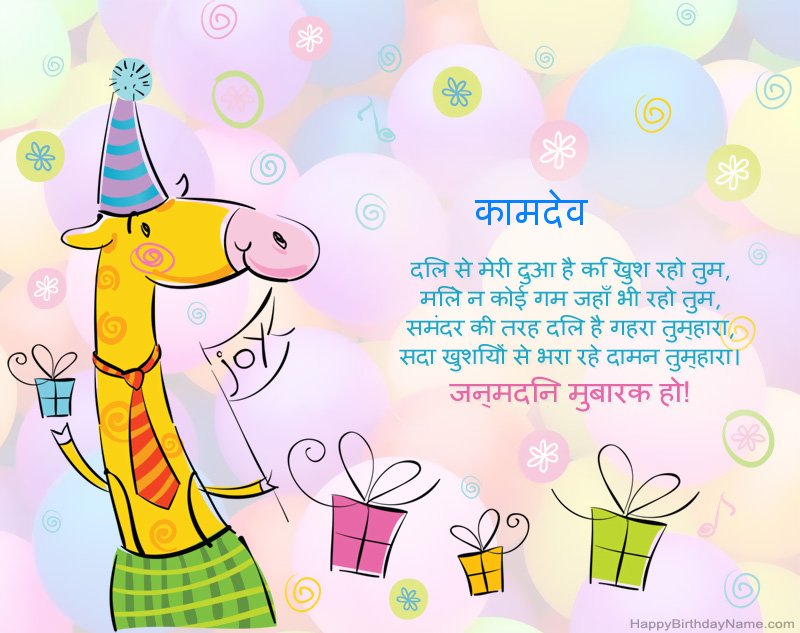 कामदेव
दिल से मेरी दुआ है कि खुश रहो तुम,
मिले न कोई गम जहाँ भी रहो तुम,
समंदर की तरह दिल है गहरा तुम्हारा,
सदा खुशियों से भरा रहे दामन तुम्हारा।
जन्मदिन मुबारक हो!
joy
HappyBirthdayName.com